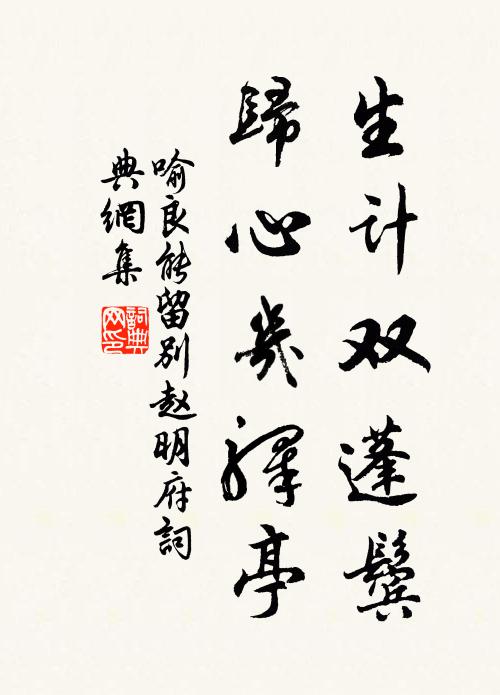 生计双蓬鬓
歸心幾驛亭
喻良能留别赵明府詞
典網集
詞典网印